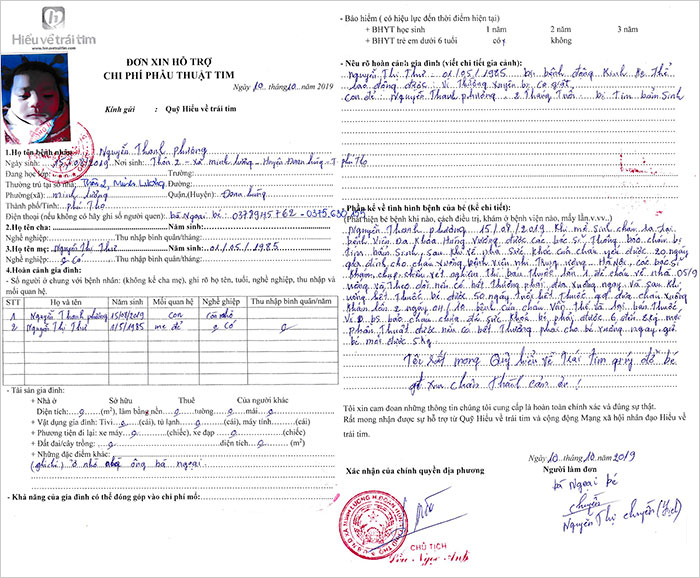 Hiểu về trái tim
www.hieuvetraitim.com
ĐƠN XIN HỖ TRỢ
CHI PHÍ PHẪU THUẬT TIM
Ngày 10 tháng 10 năm 2019
Kính gửi : Quỹ Hiểu về trái tim
1.Họ tên bệnh nhân: Nguyễn Thanh phương
Ngày sinh: 15/08/2019 Nơi sinh: Thôn 2 - xã minh lương - Huyện Đoan hùng - T. phú Thọ
Đang học lớp: Trường:
Thường trú tại số nhà: Thôn 2, Minh Lương Đường:
Phường(xã): minh lương Quận,(Huyện): Đoan hùng
Thành phố/Tỉnh: phú Thọ
Điện thoại (nếu không có hãy ghi số người quen): bà ngoại bé: 0372945762 - 0375.630.
2.Họ tên cha: Năm sinh:
Nghề nghiệp: Thu nhập bình quân/tháng:
3.Họ tên mẹ: Nguyễn Thị Thư 01/05/1985
Nghề nghiệp: 0 Có Thu nhập bình quân/tháng:
4.Hoàn cảnh gia đình:
- Số người ở chung với bệnh nhân: (không kể cha mẹ), ghi rõ họ tên, tuổi, nghề nghiệp, thu nhập và
mối quan hệ.
STT Họ và tên Năm sinh Mối quan hệ Nghề nghiệp Thu nhập bình quân/năm
1 Nguyễn Thanh phương 15/08/2019 con còn nhỏ
2 Nguyễn Thị Thư 1/5/1985 mẹ đẻ 0 Có 0
- Tài sản gia đình:
+ Nhà ở Sở hữu Thuê Của người khác
Diện tích: 0 (m2), làm bằng nền 0 tường 0 mái 0
+ Vật dụng gia đình: Tivi (cái), tủ lạnh (cái), máy tính (cái)
+ Phương tiện đi lại: xe máy (chiếc), xe đạp 0 (chiếc)
+ Đất đai/cây trồng: 0 (m2)
+ Những đặc điểm khác:
(ghi chi) ở nhờ nhà ông bà ngoại
- Khả năng của gia đình có thể đóng góp vào chi phí mổ:
- Bảo hiểm ( có hiệu lực đến thời điểm hiện tại)
+ BHYT học sinh 1 năm 2 năm 3 năm
+ BHYT trẻ em dưới 6 tuổi có không
- Nêu rõ hoàn cảnh gia đình (viết chi tiết gia cảnh):
Nguyễn Thị Thư : 01/05/1985 bị bệnh động kinh
lao động được : vì Thường xuyên bị co giật
Con đẻ: Nguyễn Thanh phương : 2 Tháng Tuổi : bị Tim bẩm Sinh
- Phần kể về tình hình bệnh của bé (kể chi tiết):
(Phát hiện bé bệnh khi nào, cách điều trị, khám ở bệnh viện nào, mấy lần.v.v..)
Nguyễn Thanh phương : 15/08/2019 Khi mẹ sinh cháu ra Tại
bệnh Viện Đa Khoa Hùng Vương được các bác Sĩ Thông báo cháu bị
Tim bẩm Sinh, sau khi về nhà sức khỏe của cháu yếu được 20 ngày
gia đình cho cháu xuống bệnh viện nhi Trung ương - Hà Nội, các bác sĩ
khám, chụp chiếu, xét nghiệm Thì bán Thuốc lần 1 để cháu về nhà 05/9
uống và Theo dõi nếu có bất Thường phải đưa xuống ngay, và sau khi
uống hết Thuốc bé được 50 ngày Tuổi hết Thuốc gđ đưa cháu xuống
khám lần 2 ngày 04/10 bệnh của cháu Vẫn Thế và lại bán Thuốc,
bác sĩ bảo cháu chưa đủ sức khỏe bé phải được 6 đến 8kg mới
phẫu Thuật được nếu có bất Thường phải cho bé xuống ngay, giờ
bé mới được 5kg
Tôi rất mong Quỹ hiểu về Trái Tim giúp đỡ bé
gđ xin chân Thành cảm ơn !
Tôi xin cam đoan những thông tin chúng tôi cung cấp là hoàn toàn chính xác và đúng sự thật.
Rất mong nhận được sự hỗ trợ từ Quỹ Hiểu về trái tim và cộng động Mạng xã hội nhân đạo Hiểu về
trái tim.
Ngày 10 tháng 10 năm 2019
Xác nhận của chính quyền địa phương Người làm đơn
Bà Ngoại bé
chuyển
Nguyễn Thị chuyển (Bích)
CHỦ TỊCH
Trần Ngọc Anh